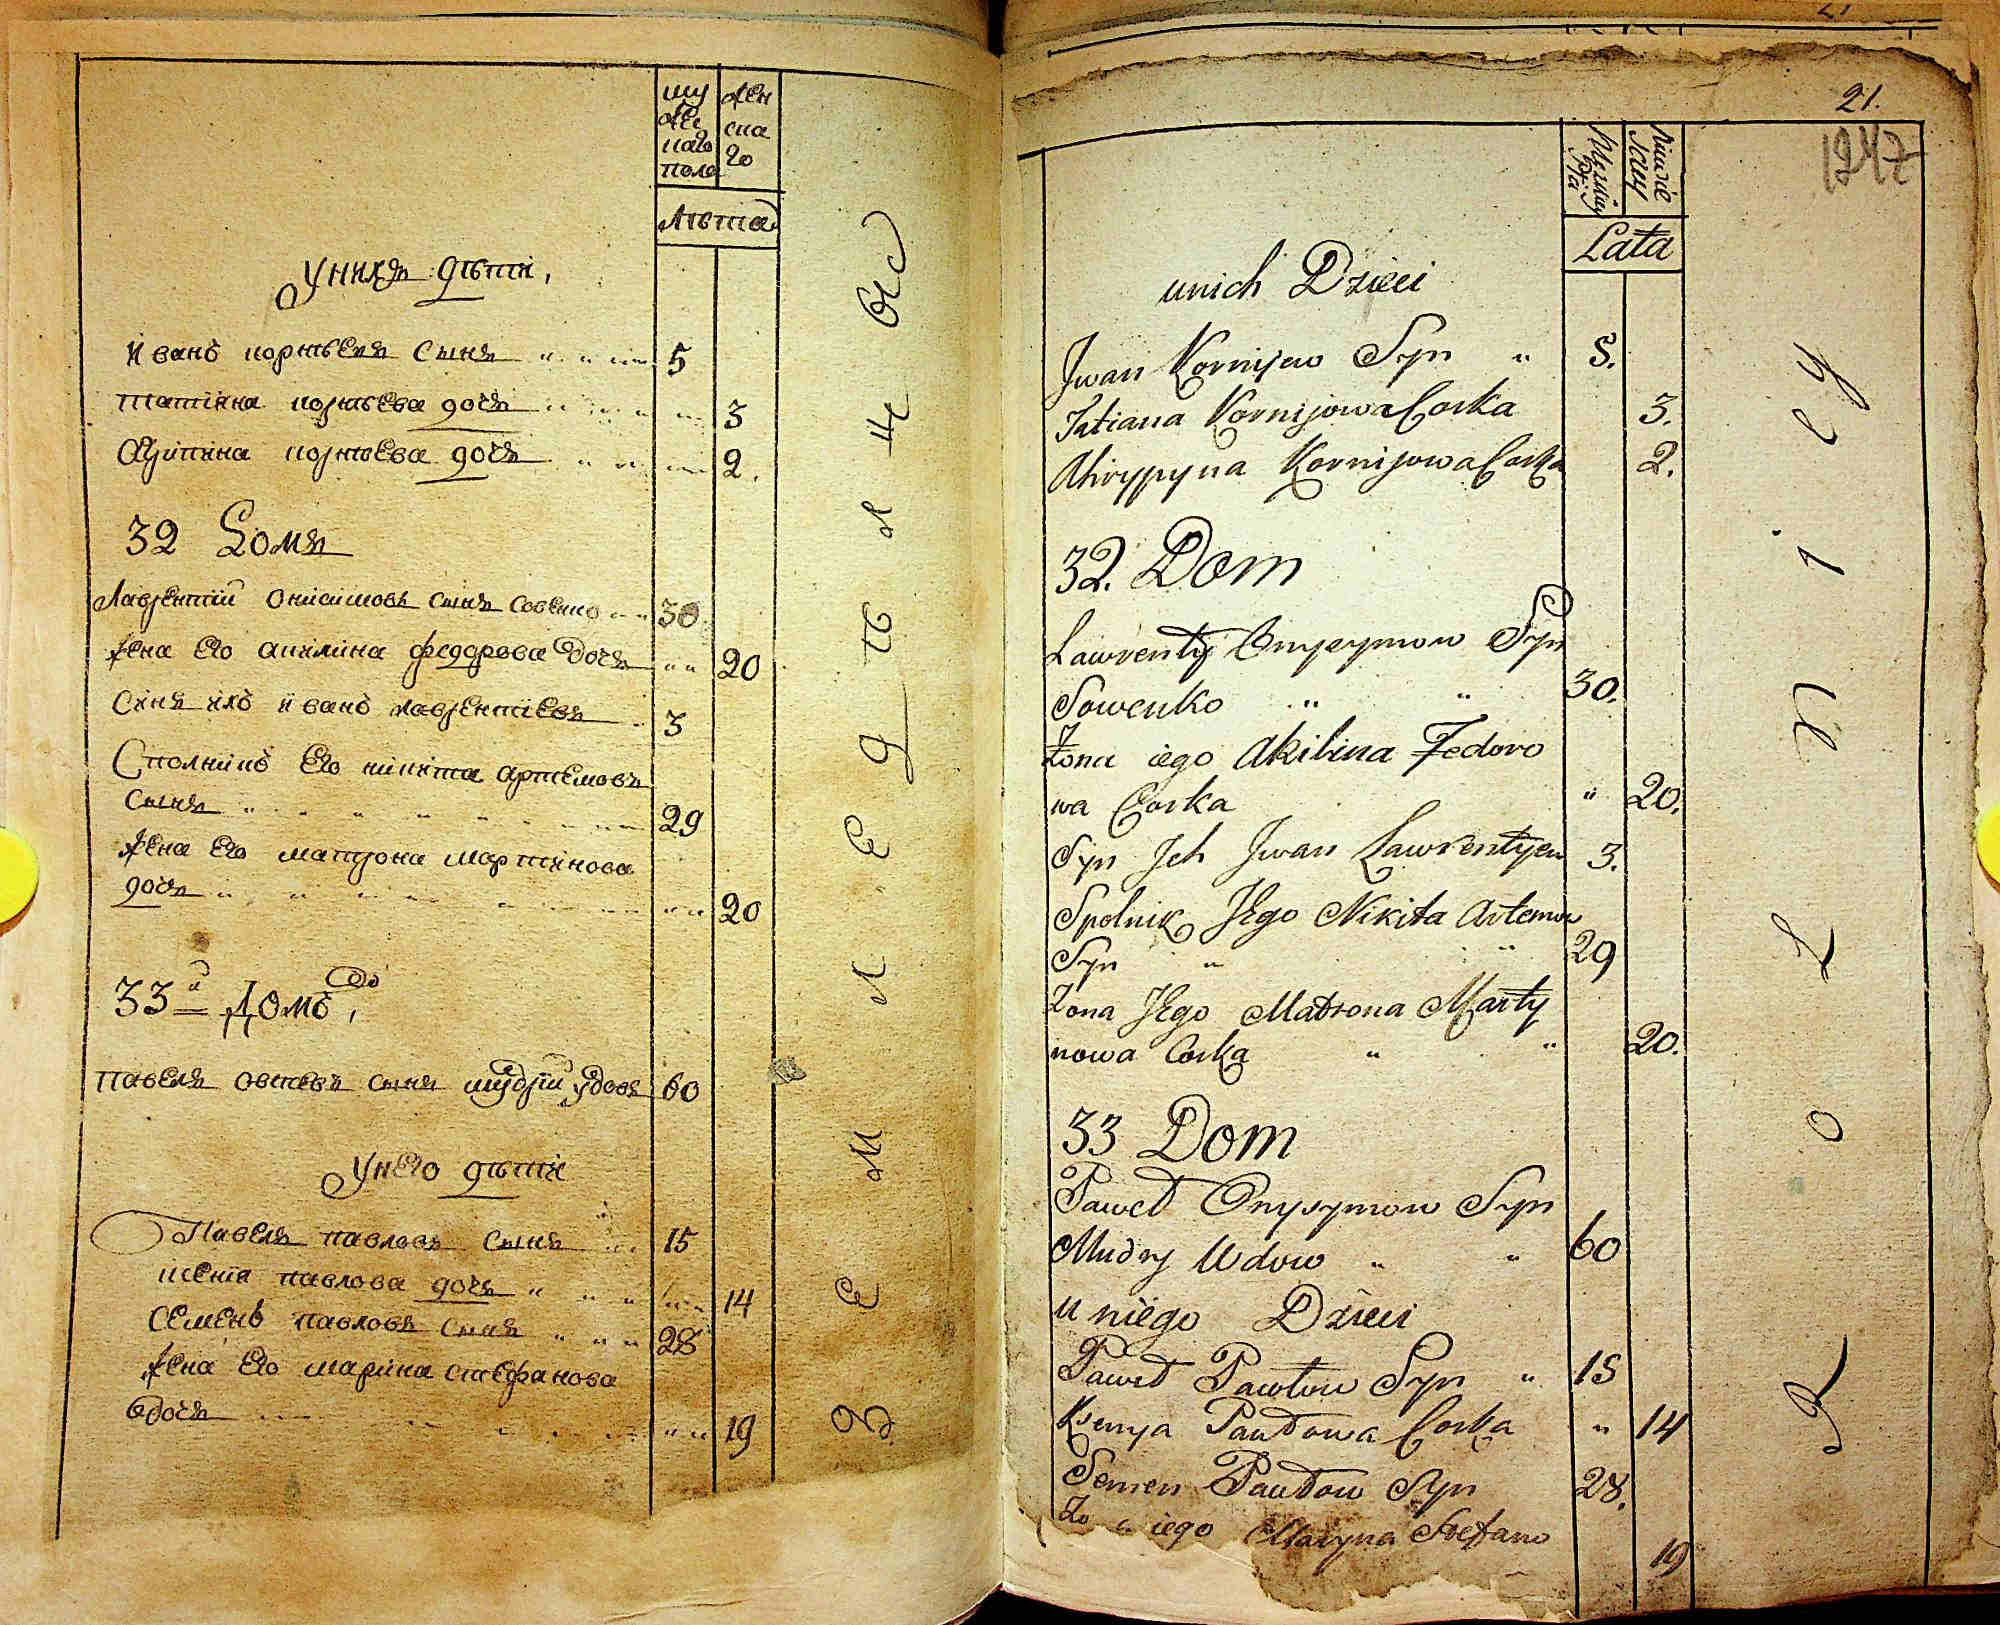 му
же
скаго
пола
жен
ска
го
Лѣта
Унихъ дѣти,
Иванъ корнѣевъ сынъ 5
татіяна корнѣева дочь 3
Агрипина корнѣева дочь 2.
32 Домъ
Лаврентій онисимовъ сынъ совенко 30
жена его акилина федорова дочь 20
Сынъ ихъ иванъ лаврентіевъ 3
Сполникъ его никита артемовъ
сынъ 29
жена его матрона мартинова
дочь 20
33й Домъ,
павелъ сынъ мудрій удовъ 60
Унего дѣти
Павелъ павловъ сынъ 15
павлова дочь 14
Семенъ павловъ сынъ 28
жена его марина стефанова
дочь 19
З Е М Л Е Д Ѣ Л Ц
21.
1247
Lata
unich Dzieci
Jwan Kornijew Syn 5.
Tatiana Kornijowa Corka 3.
Ahrypyna Kornijowa Corka 2.
32. Dom
Lawrenty Onysymow Syn
Sowenko 30.
Zona iego Akilina Fedoro
wa Corka 20.
Syn Jch Jwan Lawrentyew 3.
Spolnik Jego Nikita Artemow
Syn 29
Zona Jego Matrona Marty
nowa Corka 20.
33 Dom
Paweł Onysymow Syn
Mudry Wdow 60
u niego Dzieci
Paweł Pawłow Syn 15
Ksenya Pawłowa Corka 14
Semen Pawłow Syn 28.
Zo a iego Maryna Stefano
19
R o l n i c y